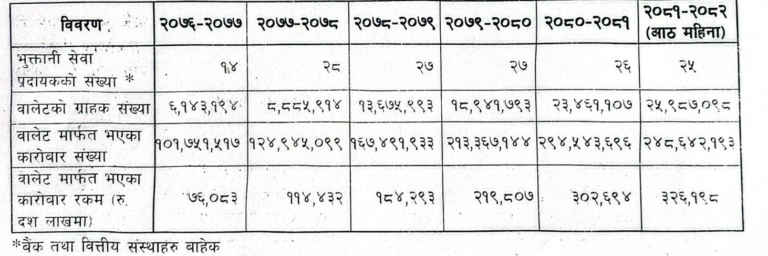 विवरण २०७६-२०७७ २०७७-२०७८ २०७८-२०७९ २०७९-२०८० २०८०-२०८१ २०८१-२०८२ (आठ महिना)
भुक्तानी सेवा प्रदायकको संख्या * १४ २८ २७ २७ २६ २५
वालेटको ग्राहक संख्या ६,१४३,१९४ ८,८८५,९१४ १३,६७५,९९३ १८,९४१,७९३ २३,४६१,१०७ २५,९८७,०९८
वालेट मार्फत भएका कारोबार संख्या १०१,७५१,५१७ १२४,९४५,०९९ १६७,४९१,९३३ २१३,३६७,१४४ २९४,५४३,६९६ २४८,६४२,१९३
वालेट मार्फत भएका कारोबार रकम (रु. दश लाखमा) ७६,०८३ ११४,४३२ १८४,२९३ २१९,८०७ ३०२,६९४ ३२६,१९८
*बैंक तथा वित्तीय संस्थाहरु बाहेक